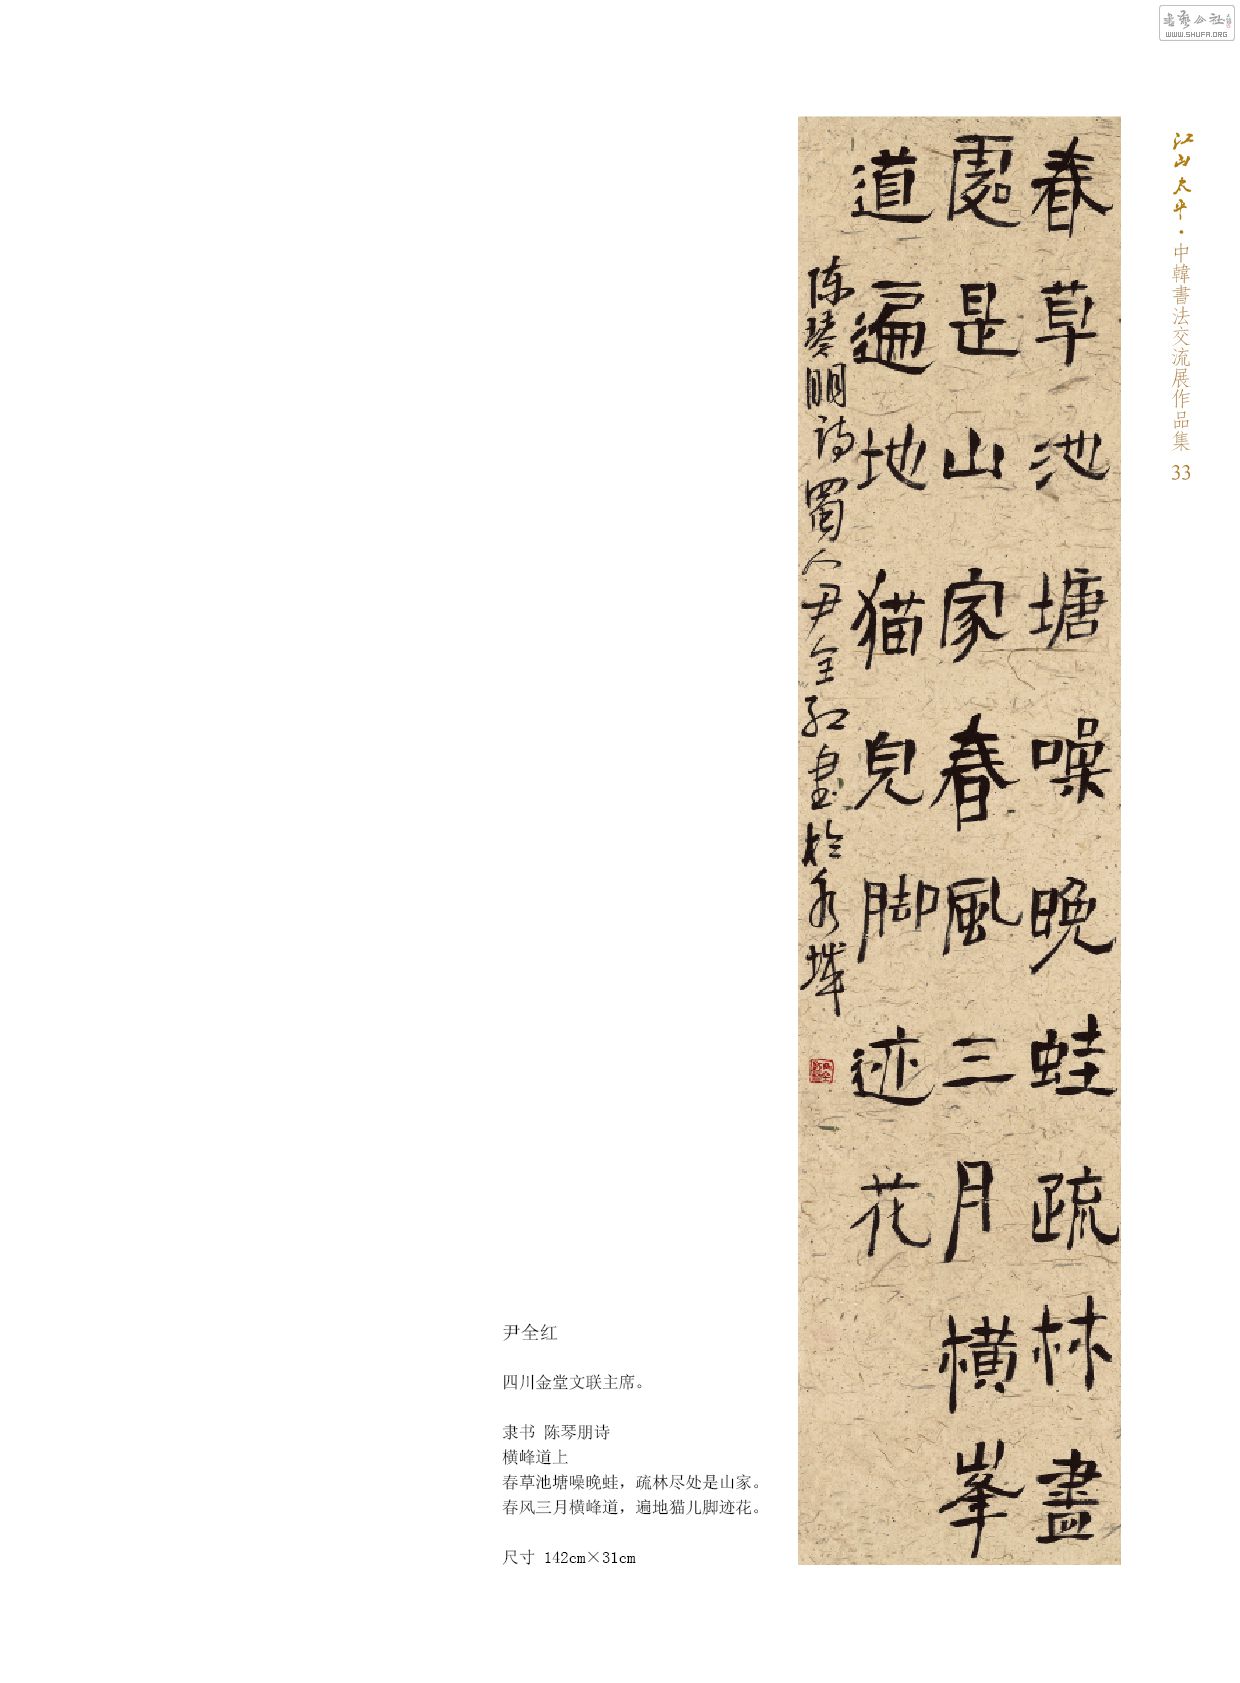 書藝公社
WWW.SHUFA.ORG
江山太平·中韓書法交流展作品集 33
春草池塘噪晚蛙疏林盡
處是山家春風三月横峯
道遍地猫兒脚迹花
陈琴朋诗蜀人尹全红书於水城
尹全红
四川金堂文联主席。
隶书 陈琴朋诗
横峰道上
春草池塘噪晚蛙，疏林尽处是山家。
春风三月横峰道，遍地猫儿脚迹花。
尺寸 142cm×31cm